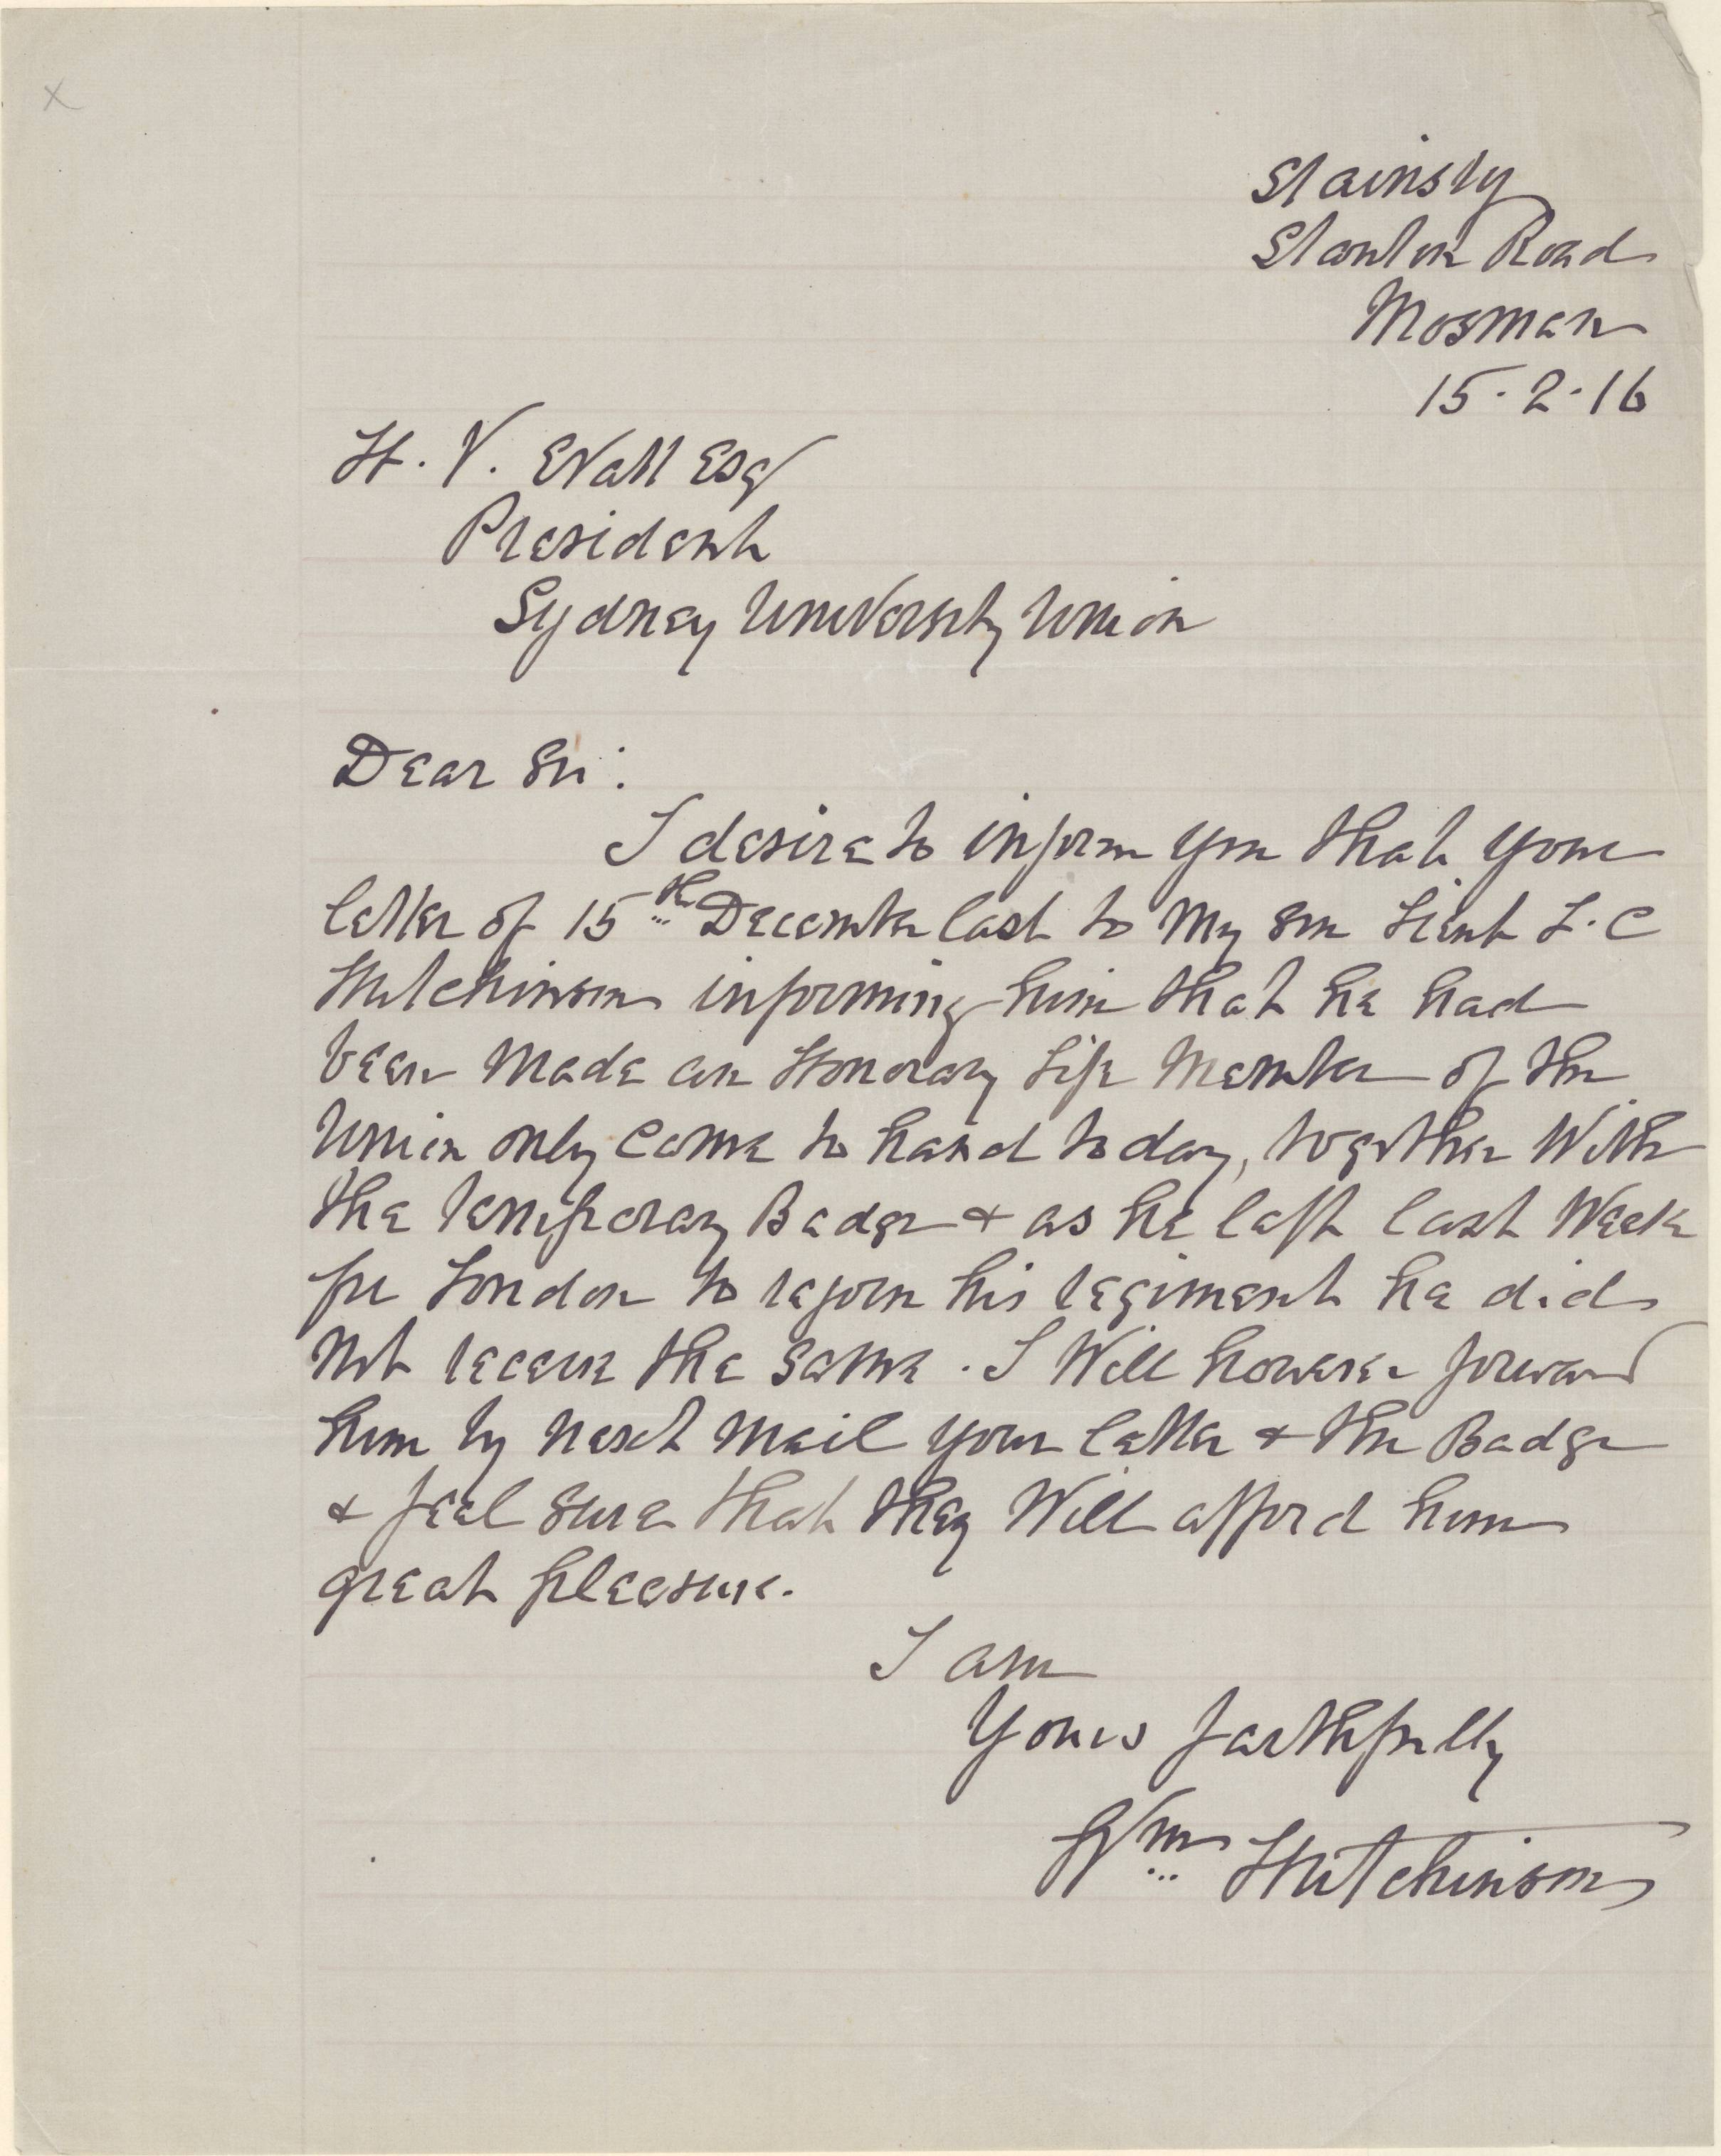 Stainsby
Stanton Road
Mosman
15.2.16
H. V. Evatt Esq
President
Sydney University Union
Dear Sir:
I desire to inform you that your
letter of 15th December last to my son Lieut L. C
Hutchinson informing him that he had
been made an Honorary Life Member of the
Union only came to hand today, together with
the temporary Badge & as he left last week
for London to rejoin his regiment he did
not receive the same. I will however forward
him by next mail your letter & the Badge
& feel sure that they will afford him
great pleasure.
I am
Yours faithfully
Wm Hutchinson